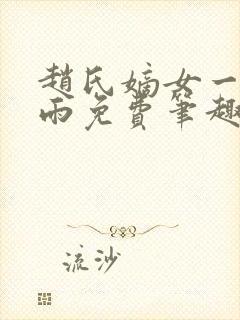 趙氏嫡女一
雨免費筆趣
流沙